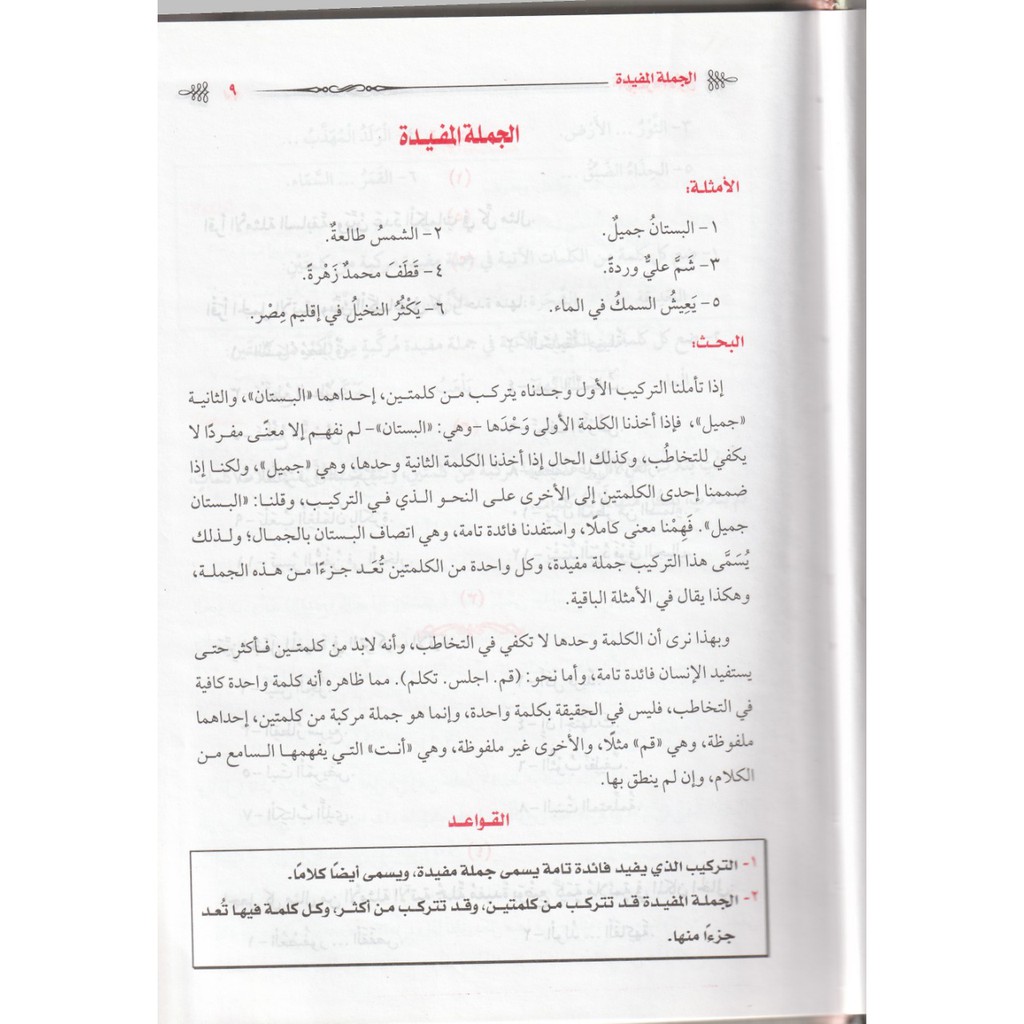 الجملة المفيدة ٩
الجملة المفيدة
الأمثلة:
١- البستانُ جميلٌ. ٢- الشمسُ طالعةٌ.
٣- شَمَّ عليٌّ وردةً. ٤- قَطَفَ محمدٌ زَهْرةً.
٥- يَعِيشُ السمكُ في الماء. ٦- يَكْثُرُ النخيلُ في إقليم مِصْر.
البحث:
إذا تأملنا التركيب الأول وجدناه يتركب من كلمتين، إحداهما «البستان»، والثانية
«جميل»، فإذا أخذنا الكلمة الأولى وَحْدَها -وهي: «البستان»- لم نفهم إلا معنًى مفردًا لا
يكفي للتخاطُب، وكذلك الحال إذا أخذنا الكلمة الثانية وحدها، وهي «جميل»، ولكنا إذا
ضممنا إحدى الكلمتين إلى الأخرى على النحو الذي في التركيب، وقلنا: «البستان
جميل». فَهِمْنا معنى كاملًا، واستفدنا فائدة تامة، وهي اتصاف البستان بالجمال؛ ولذلك
يُسَمَّى هذا التركيب جملة مفيدة، وكل واحدة من الكلمتين تُعَد جزءًا من هذه الجملة،
وهكذا يقال في الأمثلة الباقية.
وبهذا نرى أن الكلمة وحدها لا تكفي في التخاطب، وأنه لابد من كلمتين فأكثر حتى
يستفيد الإنسان فائدة تامة، وأما نحو: (قم. اجلس. تكلم). مما ظاهره أنه كلمة واحدة كافية
في التخاطب، فليس في الحقيقة بكلمة واحدة، وإنما هو جملة مركبة من كلمتين، إحداهما
ملفوظة، وهي «قم» مثلًا، والأخرى غير ملفوظة، وهي «أنت» التي يفهمها السامع من
الكلام، وإن لم ينطق بها.
القواعد
١- التركيب الذي يفيد فائدة تامة يسمى جملة مفيدة، ويسمى أيضًا كلامًا.
٢- الجملة المفيدة قد تتركب من كلمتين، وقد تتركب من أكثر، وكل كلمة فيها تُعد
جزءاً منها.